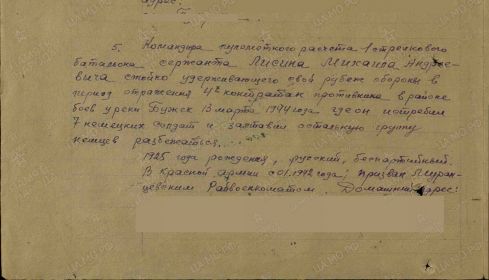 адрес:
5. Командира пулеметного расчета 1 стрелкового
батальона сержанта Лисина Михаила Андрее-
вича стойко удерживающего свой рубеж обороны в
период отражения 4х контратак противника в районе
боев у реки Бужск 13 марта 1944 года где он истребил
7 немецких солдат и заставил остальную группу
немцев разбежаться.
1925 года рождения, русский, беспартийный.
В красной армии с 01.1942 года, призван
цевским Райвоенкоматом. Домашний адрес: